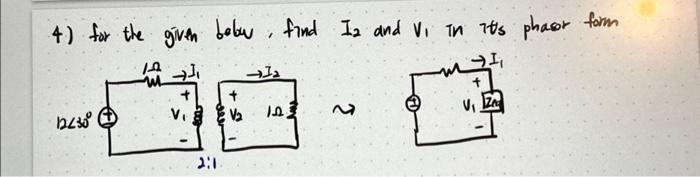 4) for the given below, find I₂ and V₁ in it's phasor form
1Ω → I₁ → I₂ → I₁
12∠30° + V₁ - + V₂ - 1Ω ⇝ + V₁ -
2:1